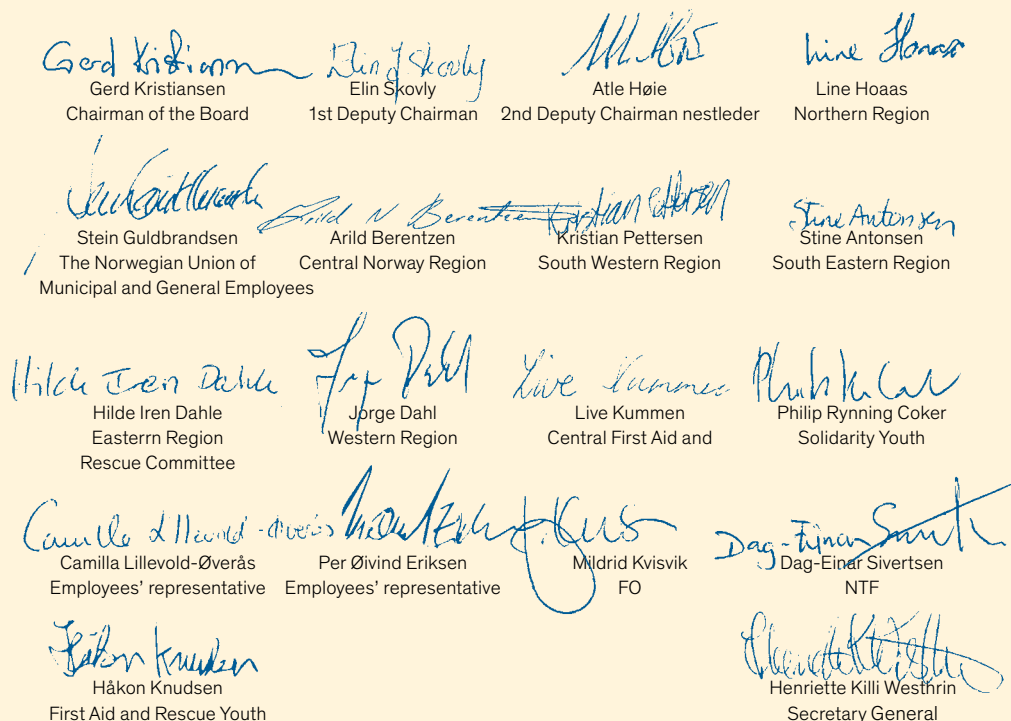 Gerd Kristiansen
Chairman of the Board
Elin Skovly
1st Deputy Chairman
Atle Høie
2nd Deputy Chairman nestleder
Line Hoaas
Northern Region
Stein Guldbrandsen
The Norwegian Union of
Municipal and General Employees
Arild N Berentzen
Arild Berentzen
Central Norway Region
Kristian Pettersen
Kristian Pettersen
South Western Region
Stine Antonsen
Stine Antonsen
South Eastern Region
Hilde Iren Dahle
Hilde Iren Dahle
Easterrn Region
Rescue Committee
Jorge Dahl
Western Region
Live Kummen
Live Kummen
Central First Aid and
Philip Rynning Coker
Solidarity Youth
Camilla Lillevold-Øverås
Camilla Lillevold-Øverås
Employees' representative
Per Øivind Eriksen
Employees' representative
Mildrid Kvisvik
FO
Dag-Einar Sivertsen
NTF
Håkon Knudsen
Håkon Knudsen
First Aid and Rescue Youth
Henriette Killi Westhrin
Secretary General